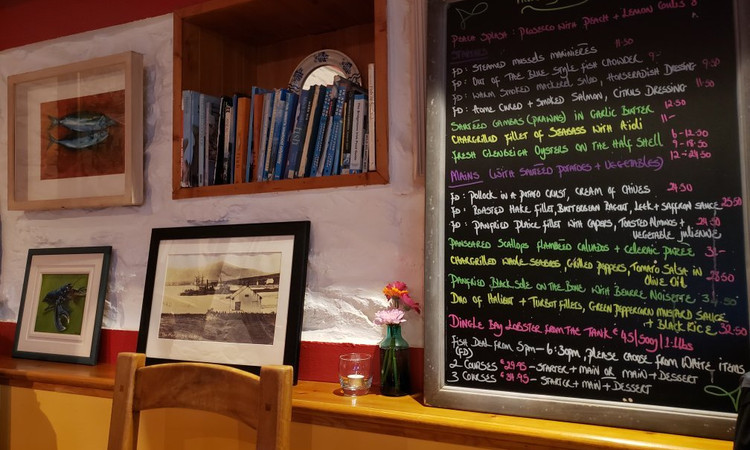 Peach Splash: Prosecco with Peach + Lemon Coulis 8
Starters
FD: Steamed Mussels Marinieres 11.50
FD: Out of the Blue Style Fish Chowder 9.-
FD: Warm Smoked Mackerel Salad, Horseradish Dressing 9.50
FD: Home Cured + Smoked Salmon, Citrus Dressing 11.50
Sauteed Gambas (Prawns) in Garlic Butter 12.50
Chargrilled Fillet of Seabass with Aioli 11.-
Fresh Glenbeigh Oysters on the Half Shell 6-12.50
9-18.50
12-24.50
Mains (with Sauteed Potatoes + Vegetables)
FD: Pollock in a Potato Crust, Cream of Chives 24.50
FD: Roasted Hake Fillet, Butterbean Ragout, Leek + Saffron Sauce 25.50
FD: Panfried Plaice Fillet with Capers, Toasted Almonds + 24.50
Vegetable Julienne
Panseared Scallops Flambéed Calvados + Celeriac Purée
Chargrilled Whole Seabass, Grilled Peppers, Tomato Salsa in
Olive Oil 28.50
Panfried Black Sole on the Bone with Beurre Noisette
Duo of Halibut + Turbot Fillets, Green Peppercorn Mustard Sauce
+ Black Rice 32.50
Dingle Bay Lobster from the Tank € 45/500g/1.1lbs
Fish Deal from 5pm - 6:30pm, please choose from white items
(FD)
2 Courses € 29.95 - Starter + Main or Main + Dessert
3 Courses € 34.95 - Starter + Main + Dessert